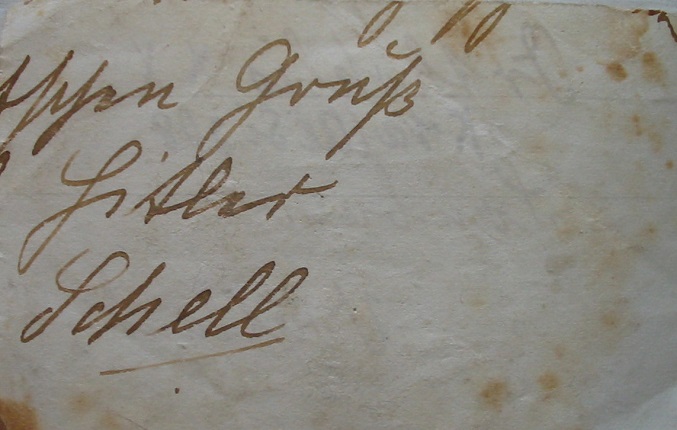 tschen Gruß
Hitler
Schell